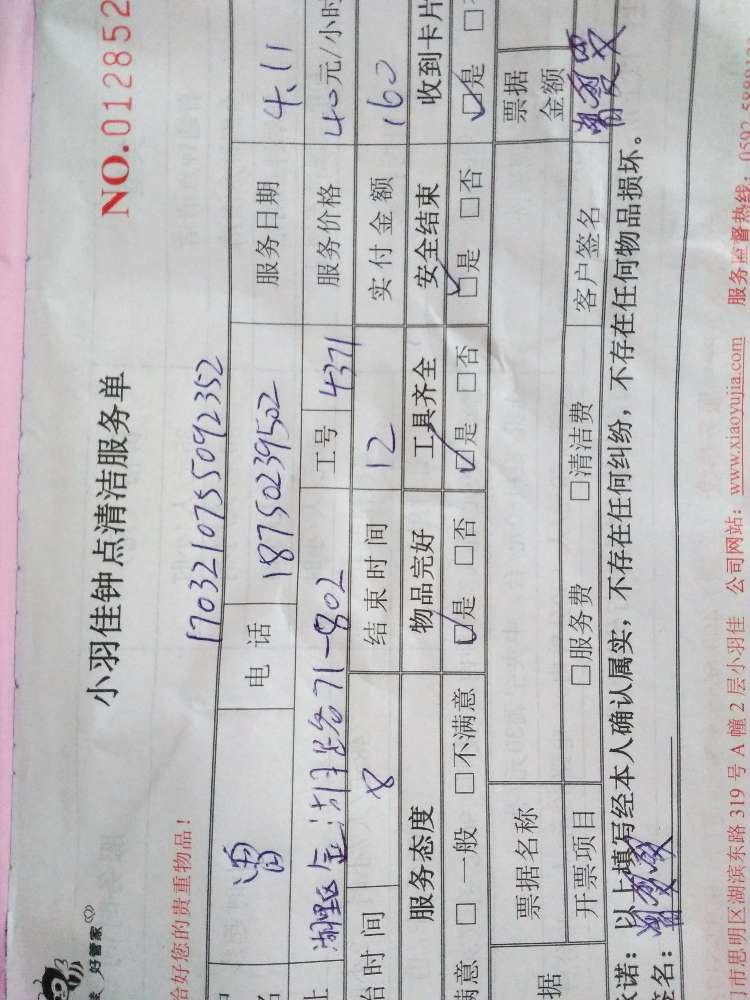 好管家
小羽佳钟点清洁服务单
NO.012852
给好您的贵重物品！
1703210755092352
曾 电话 18750239502 服务日期 4.11
湖里区金湖路71-802 工号 4371 服务价格 40元/小时
台时间 8 结束时间 12 实付金额 160
服务态度 物品完好 工具齐全 安全结束 收到卡片
满意 □一般 □不满意 ☑是 □否 ☑是 □否 ☑是 □否 ☑是 □
据 票据名称 票据金额
开票项目 □服务费 □清洁费 客户签名
诺：以上填写经本人确认属实，不存在任何纠纷，不存在任何物品损坏。
签名：
门市思明区湖滨东路 319 号 A 幢 2 层小羽佳 公司网站：www.xiaoyujia.com 服务监督热线：0592-588